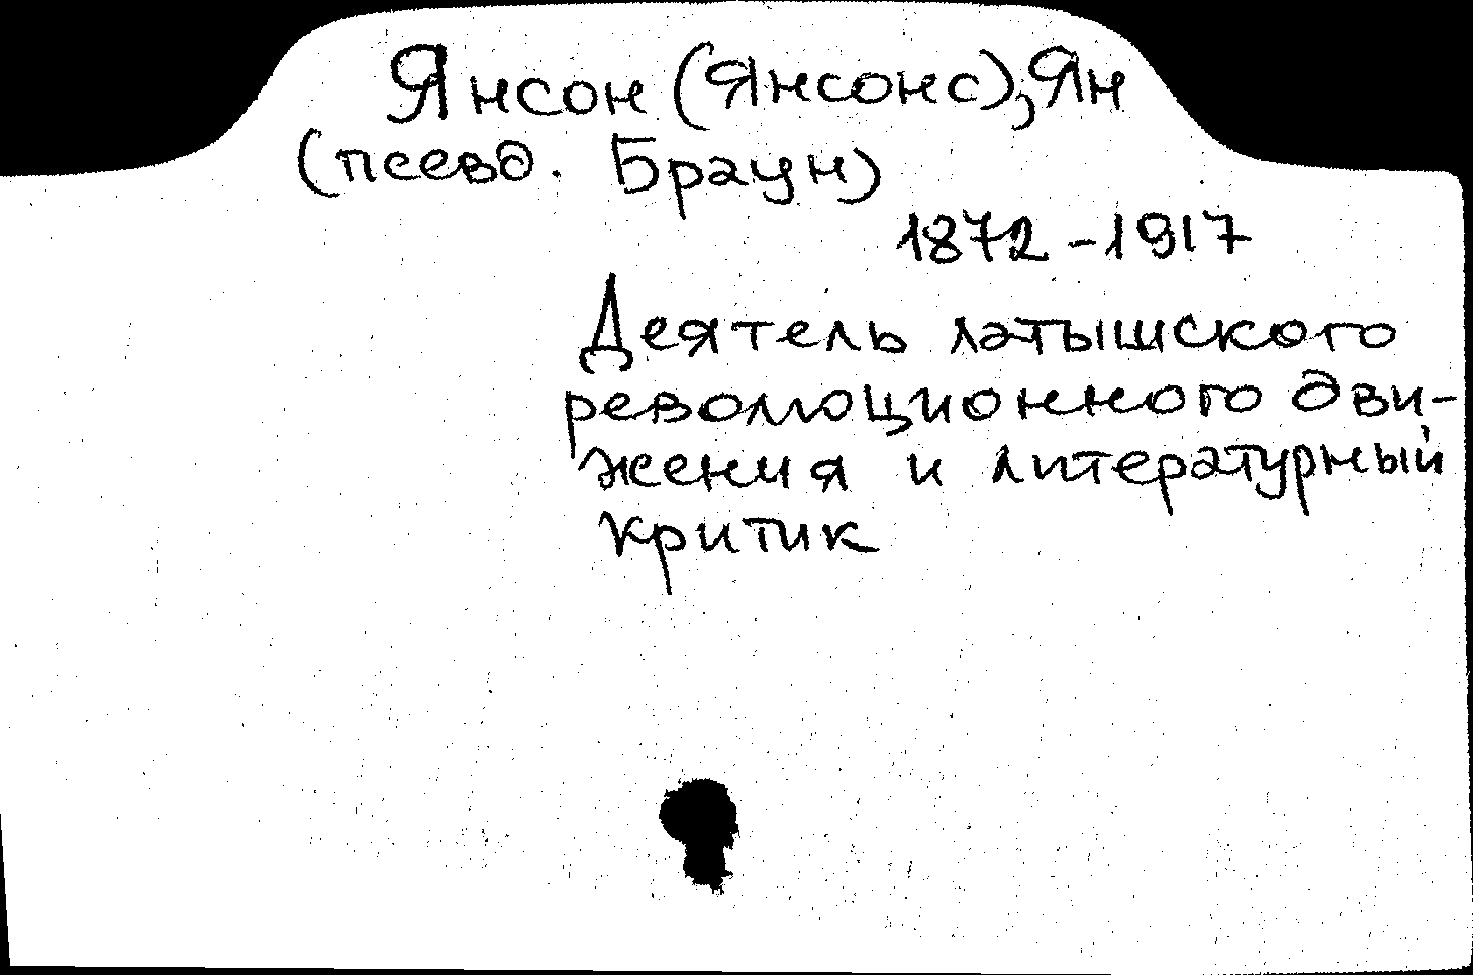 Янсон (Янсонс), Ян
(псевд. Браун)
1872-1917
Деятель латышского
революционного дви-
жения и литературный
критик